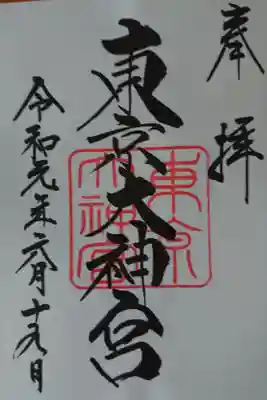 奉拝
東京大神宮
東京大神宮
令和元年六月十九日